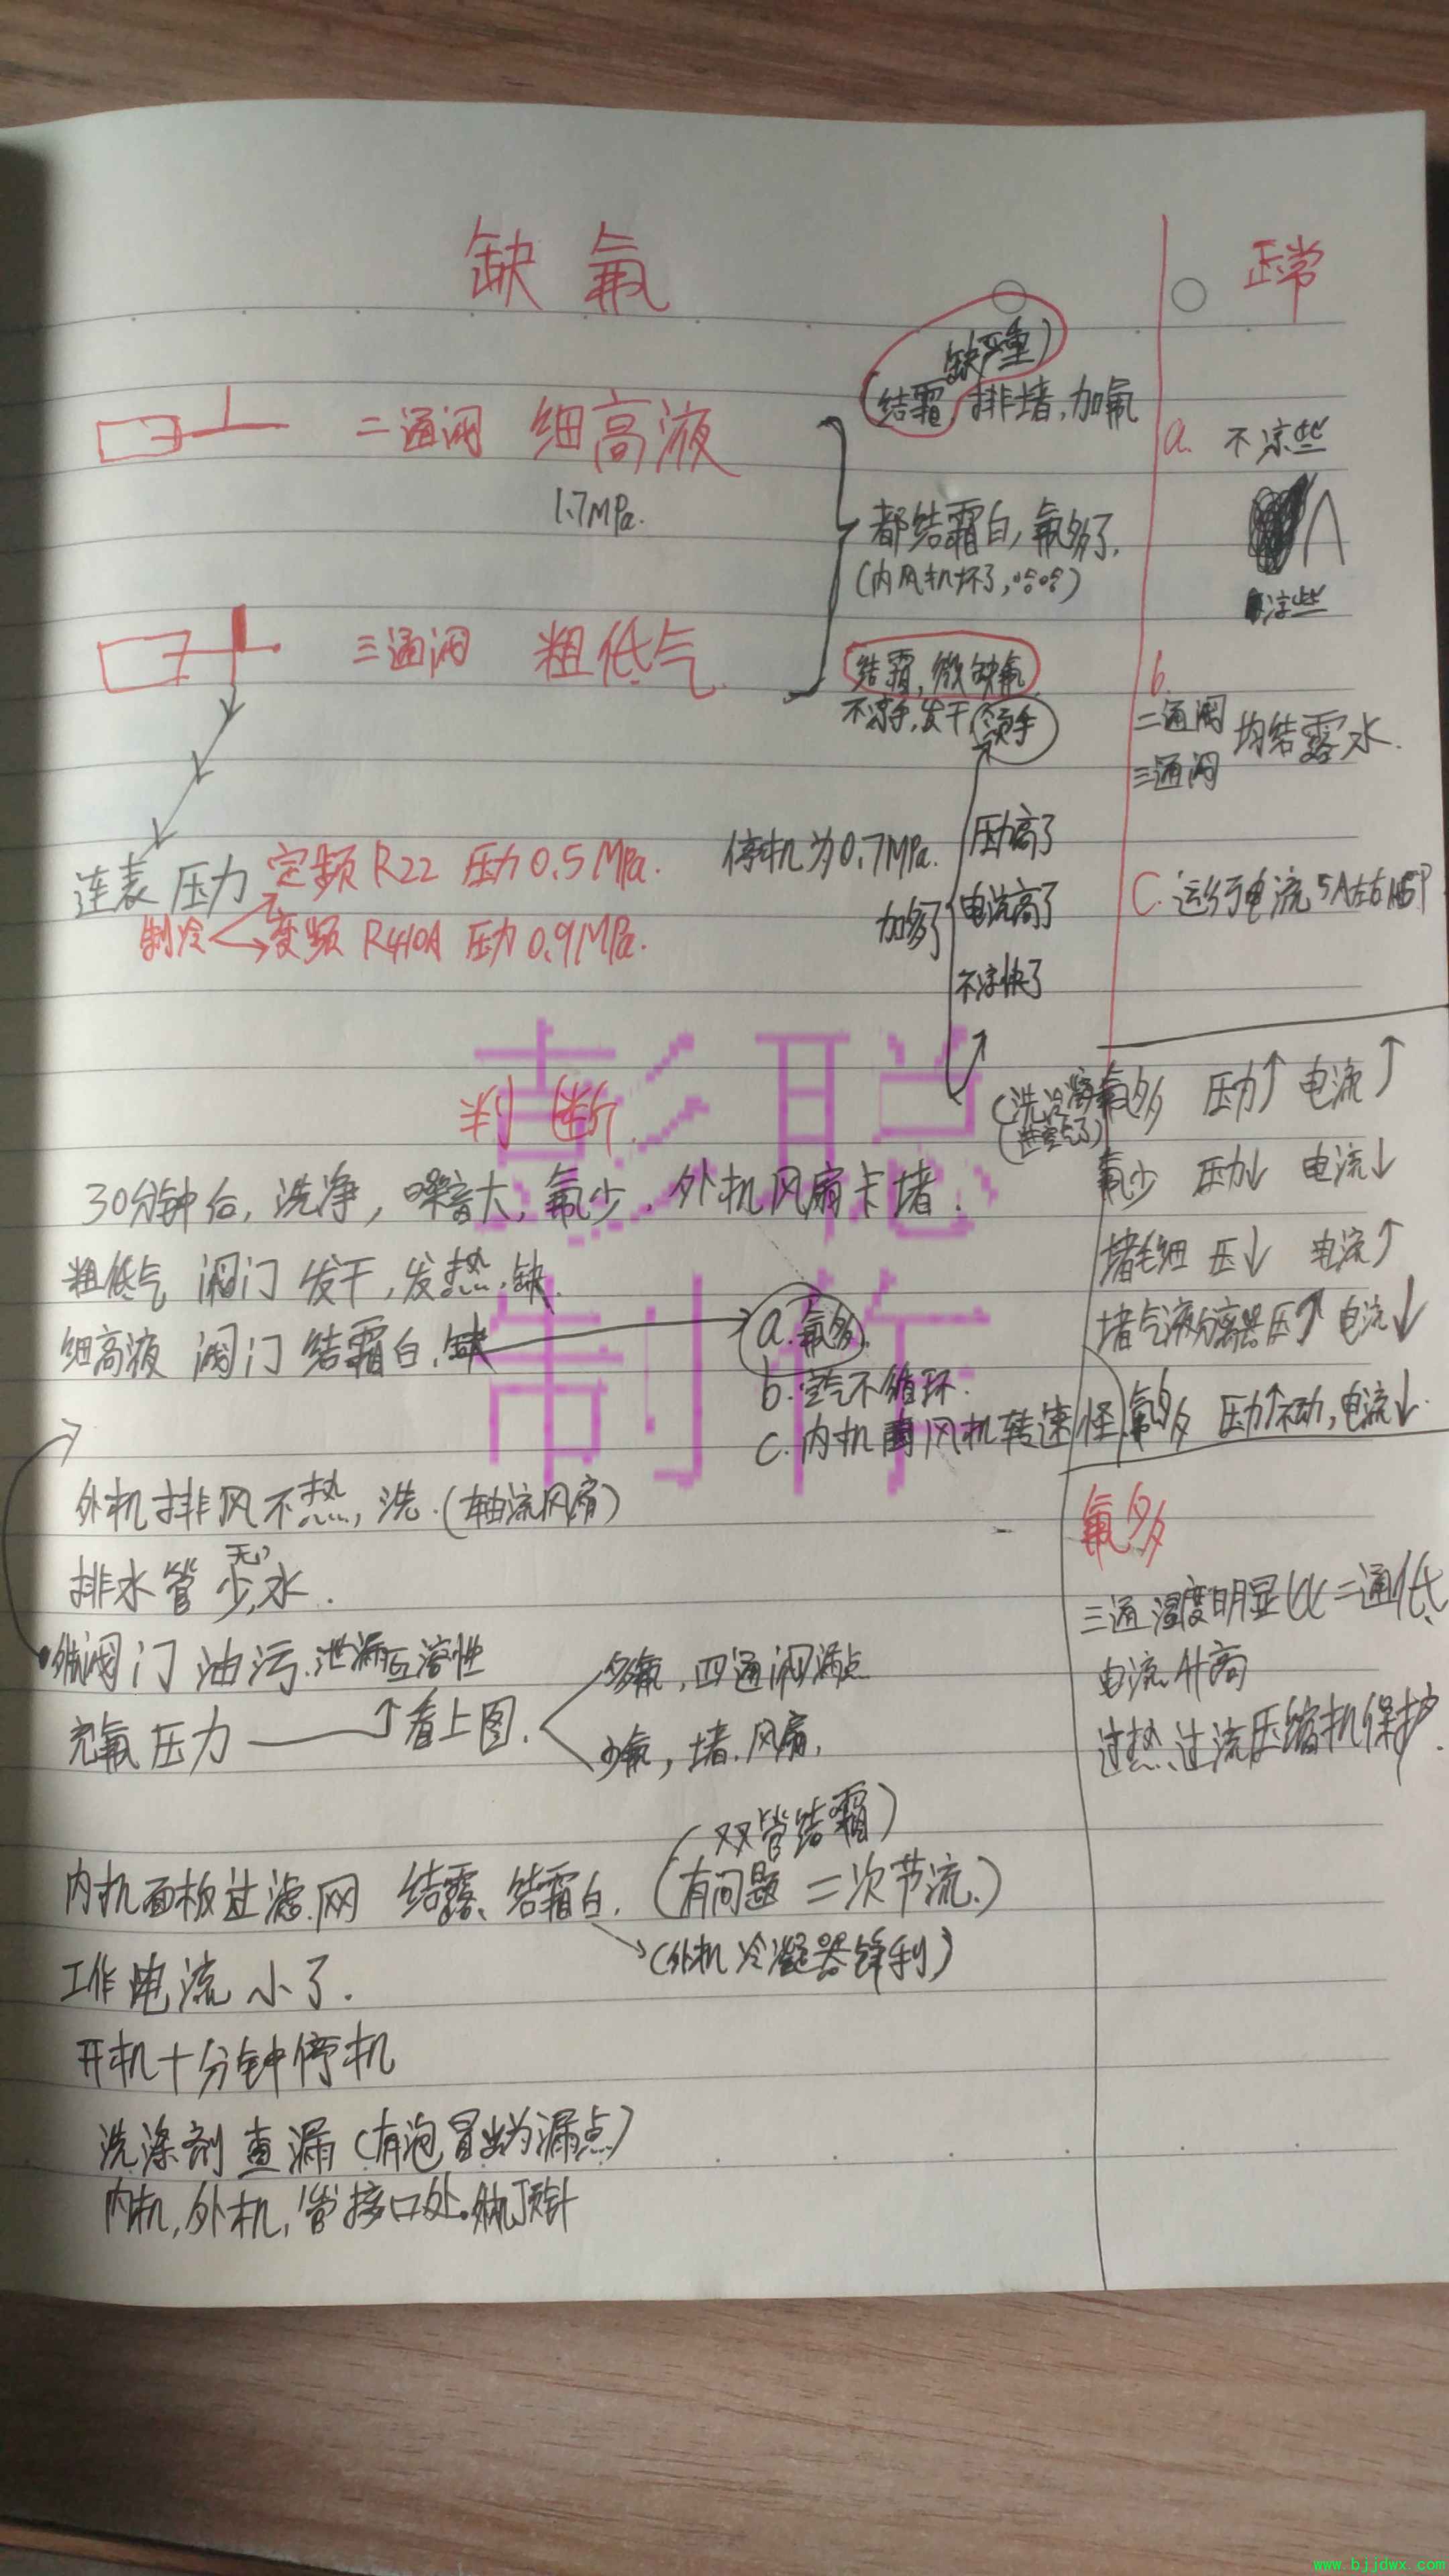 缺氟
正常
缺严重)
(结霜,排堵,加氟
二通阀 细高液
1.7MPa.
a. 不凉些
都结霜白,氟多了.
(内风机坏了,哈哈)
凉些
三通阀 粗低气
结霜,微缺氟
不凉手,发干,
b.
二通阀
三通阀
均结露水.
连表压力
制冷
定频 R22 压力0.5MPa.
变频 R410A 压力0.9MPa.
停机为0.7MPa.
加多了
压力高了
电流高了
不凉快了
C.运行电流5A左右
判断.
30分钟后,洗净,噪音大,氟少,外机风扇卡堵.
粗低气 阀门 发干,发热.缺.
细高液 阀门 结霜白.缺
a.氟多.
b.空气不循环.
c.内机 风机转速怪
氟多 压力↑ 电流↑
氟少 压力↓ 电流↓
堵毛细 压↓ 电流↑
堵气液分离器压↑ 电流↓
氟多 压力↑不动,电流↓.
外机排风不热,洗.(轴流风扇)
排水管 少,水.
无
阀门 油污.泄漏互溶性
充氟压力 → 看上图.
多氟,四通阀漏点
少氟,堵.风扇,
氟多
三通温度明显比二通低
电流升高
过热、过流压缩机保护.
(双管结霜)
内机面板过滤网 结露、结霜白.(有问题 二次节流.)
(外机冷凝器锋利)
工作电流小了.
开机十分钟停机
洗涤剂查漏(有泡冒出为漏点)
内机,外机,管接口处.外机顶针
彭聪
制作
www.bjjdwx.com